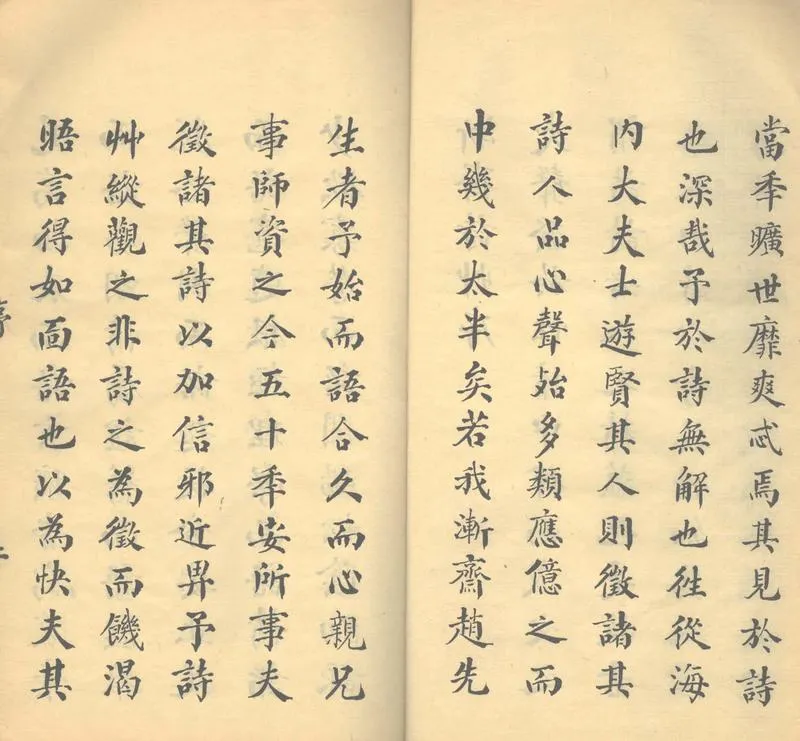 當秊曠世靡爽忒焉其見於詩
也深哉予於詩無解也徃從海
内大夫士遊賢其人則徵諸其
詩人品心聲始多類應億之而
中幾於太半矣若我漸齋趙先
生者予始而語合久而心親兄
事師資之今五十秊安所事夫
徵諸其詩以加信邪近畀予詩
艸縱觀之非詩之為徵而饑渴
晤言得如面語也以為快夫其
序